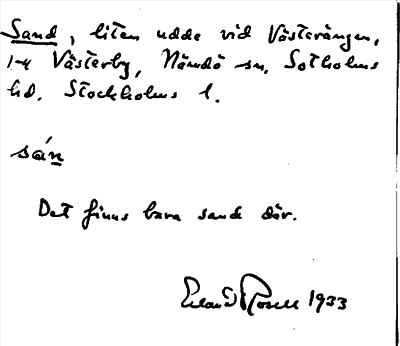 Sand, liten udde vid Västerängen,
1-4 Västerby, Nämdö sn, Sotholms
hd. Stockholms l.
sán
Det finns bara sand där.
Erland Rosell 1933